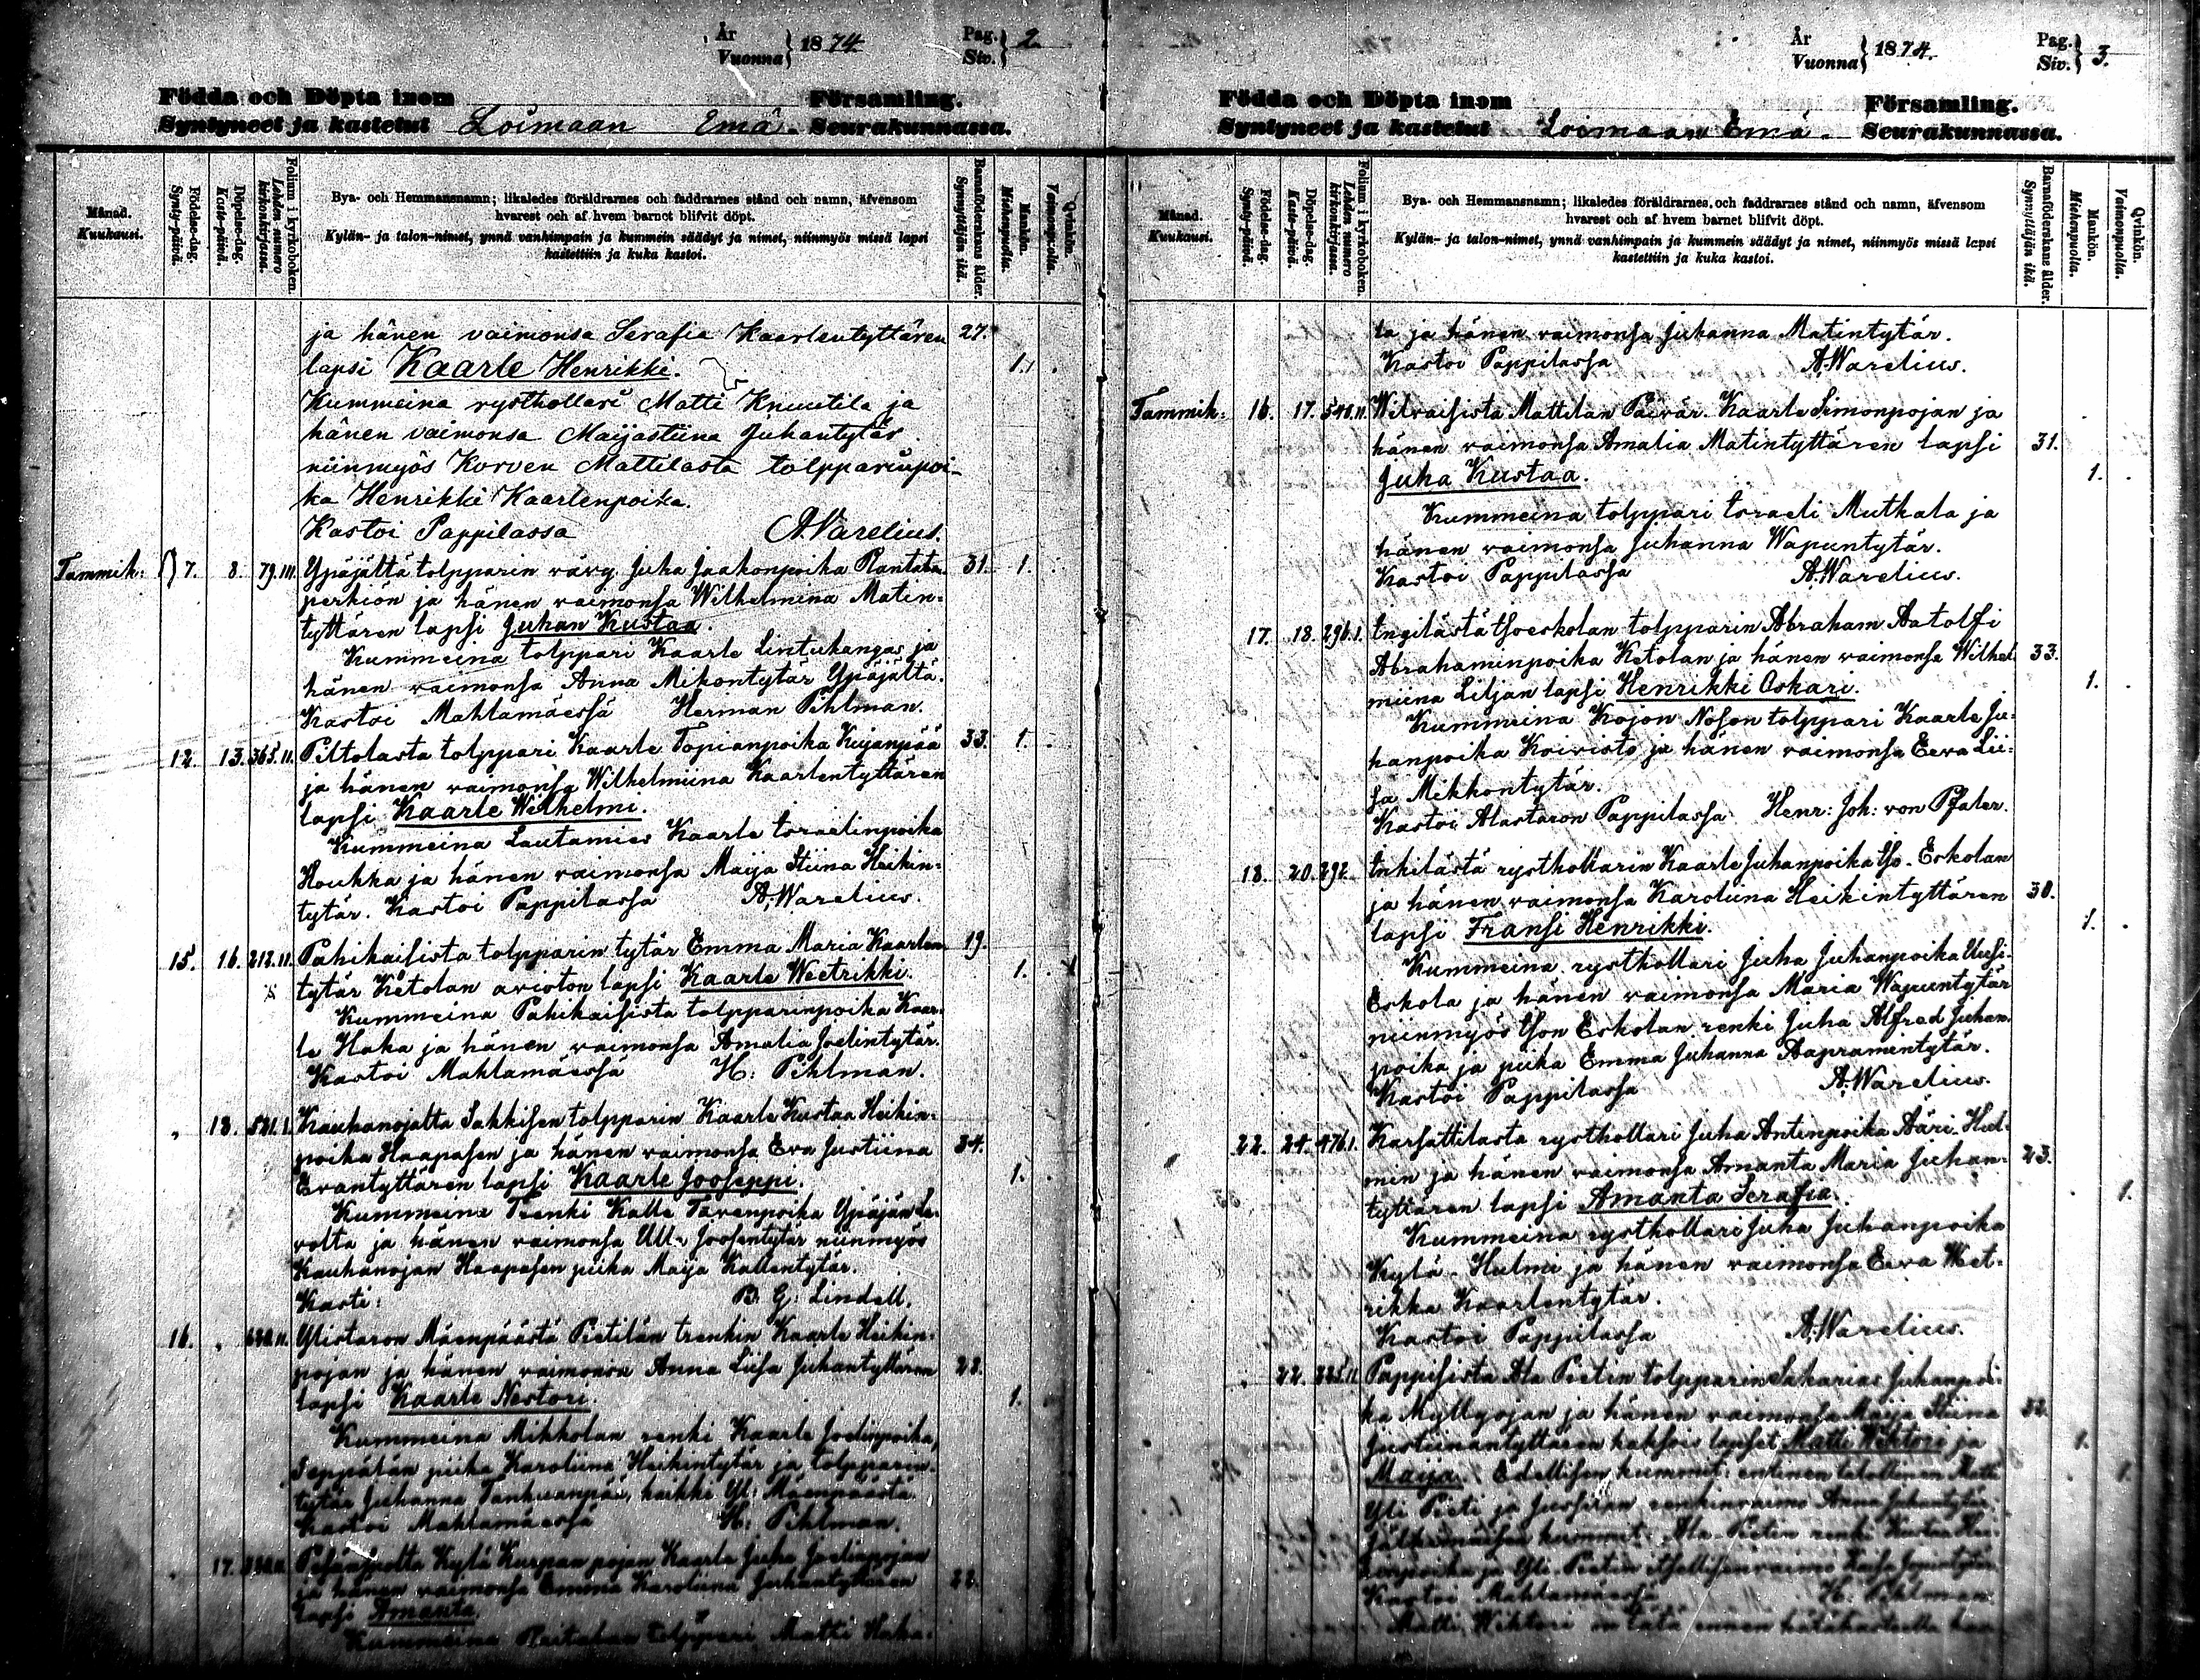 År
Vuonna } 1874.
Pag.
Siv. } 2
Födda och Döpta inom Församling.
Syntyneet ja kastetut Loimaan Emä. Seurakunnassa.
Månad.
Kuukausi.
Födelse-dag.
Synty-päivä.
Döpelse-dag.
Kaste-päivä.
Folium i kyrkoboken.
Lehden-numero kirkonkirjassa.
Bya- och Hemmansnamn; likaledes föräldrarnes och faddrarnes stånd och namn, äfvensom
hvarest och af hvem barnet blifvit döpt.
Kylän- ja talon-nimet, ynnä vanhimpain ja kummein säädyt ja nimet, niinmyös missä lapsi
kastettiin ja kuka kastoi.
Barnaföderskans ålder.
Synnyttäjän ikä.
Mankön.
Miehenpuolia.
Qvinkön.
Vaimonpuolia.
ja hänen vaimonsa Serafia Kaarlentyttären 27.
lapsi Kaarle Henrikki. 1.
Kummeina rysthollari Matti Knuutila ja
hänen vaimonsa Maijastiina Juhantytär
niinmyös Korven Mattilasta tolpparinpoi-
ka Henrikki Kaarlenpoika.
Kastoi Pappilassa A. Varelius.
Tammik: 7. 8. 79.III. Ypäjältä tolpparin vävy Juha Jaakonpoika Rantala 31. 1.
perkiön ja hänen vaimonsa Wilhelmina Matin-
tyttären lapsi Juhan Kustaa.
Kummeina tolppari Kaarle Lintukangas ja
hänen vaimonsa Anna Mikontytär Ypäjältä.
Kastoi Mahlamäessä Herman Pihlman.
12. 13. 365.II. Piltolasta tolppari Kaarle Topianpoika Kujanpää 33. 1.
ja hänen vaimonsa Wilhelmiina Kaarlentyttären
lapsi Kaarle Wilhelmi.
Kummeina Lautamies Kaarle Israelinpoika
Houkka ja hänen vaimonsa Maija Stiina Heikin-
tytär. Kastoi Pappilassa A. Warelius.
15. 16. 212.II. Pahikaisista tolpparin tytär Emma Maria Kaarlen 19.
tytär Ketolan avioton lapsi Kaarle Weetrikki. 1.
Kummeina Pahikaisista tolpparinpoika Kaar-
le Haka ja hänen vaimonsa Amalia Joelintytär.
Kastoi Mahlamäessä H. Pihlman.
" 18. 521.I. Kauhanojalta Sakkisen tolpparin Kaarle Kustaa Heikin-
poika Haapasen ja hänen vaimonsa Eva Justiina 34.
Evantyttären lapsi Kaarle Jooseppi. 1.
Kummeina Trenki Kalle Tavenpoika Ypäjän Le-
volta ja hänen vaimonsa Ulla Joosentytär niinmyös
Kauhanojan Haapasen piika Maija Kallentytär.
Kasti: B. G. Lindell.
16. " Ylistaron Mäenpäästä Pietilän trenkin Kaarle Heikin-
pojan ja hänen vaimonsa Anna Liisa Juhantyttären 28.
lapsi Kaarle Nestori. 1.
Kummeina Mikkolan renki Kaarle Joelinpoika,
Seppälän piika Karoliina Heikintytär ja tolpparin-
tytär Juhanna Tanhuanpää, kaikki Yl. Mäenpäästä.
Kastoi Mahlamäessä H. Pihlman.
" 17. Kylä Kurpan pojan Kaarle Juha Joelinpojan
ja hänen vaimonsa Emma Karoliina Juhantyttären 22.
lapsi Amanta
Kummeina tolppari Matti Haka-
År
Vuonna } 1874.
Pag.
Siv. } 3.
Födda och Döpta inom Församling.
Syntyneet ja kastetut Loimaan Emä. Seurakunnassa.
Månad.
Kuukausi.
Födelse-dag.
Synty-päivä.
Döpelse-dag.
Kaste-päivä.
Folium i kyrkoboken.
Lehden-numero kirkonkirjassa.
Bya- och Hemmansnamn; likaledes föräldrarnes och faddrarnes stånd och namn, äfvensom
hvarest och af hvem barnet blifvit döpt.
Kylän- ja talon-nimet, ynnä vanhimpain ja kummein säädyt ja nimet, niinmyös missä lapsi
kastettiin ja kuka kastoi.
Barnaföderskans ålder.
Synnyttäjän ikä.
Mankön.
Miehenpuolia.
Qvinkön.
Vaimonpuolia.
la ja hänen vaimonsa Juhanna Matintytär.
Kastoi Pappilassa A. Warelius.
Tammik: 16. 17. 540.II. Wilvaisista Mattilan Päivär. Kaarle Simonpojan ja
hänen vaimonsa Amalia Matintyttären lapsi 31.
Juha Kustaa. 1.
Kummeina tolppari Israeli Mutkala ja
hänen vaimonsa Juhanna Wapuntytär.
Kastoi Pappilassa A. Warelius.
17. 18. 296.I. Ingilästä Isoeskolan tolpparin Abraham Aatolfi
Abrahaminpoika Ketolan ja hänen vaimonsa Wilhel- 33.
miina Liljan lapsi Henrikki Oskari. 1.
Kummeina Kojon Nohon tolppari Kaarle Ju-
hanpoika Koivisto ja hänen vaimonsa Eeva Lii-
sa Mikkontytär.
Kastoi Alastaron Pappilassa Henr: Joh: von Pfaler.
18. 20. 292. Inkilästä rysthollarin Kaarle Juhanpoika Iso-Eskolan
ja hänen vaimonsa Karoliina Heikintyttären 30.
lapsi Fransi Henrikki. 1.
Kummeina rysthollari Juha Juhanpoika Uusi-
Eskola ja hänen vaimonsa Maria Wapuntytär
niinmyös Ison Eskolan renki Juha Alfred Juhan-
poika ja piika Emma Juhanna Aapramintytär.
Kastoi Pappilassa A. Warelius.
22. 24. 476.I. Karsattilasta rysthollari Juha Antinpoika Ääri-Hul-
min ja hänen vaimonsa Amanta Maria Juhan- 23.
tyttären lapsi Amanta Serafia. 1.
Kummeina rysthollari Juha Juhanpoika
Kylä-Hulmi ja hänen vaimonsa Eeva Weet-
rikka Kaarlentytär.
Kastoi Pappilassa A. Warelius.
" 22. Pappisista Ala Pietin tolpparin Sakarias Juhanpoi-
ka Myllyojan ja hänen vaimonsa Maija Stiina 32.
Justiinantyttären kaksois lapset Matti Wihtori ja 1.
Maija. Edellisen kummit: entinen talollinen Matti 1.
Yli Pieti ja Anna Juhantytär.
Jälkimäisen kummit: Ala-Pietin renki Kustaa
ja Yli-Pietin itsellisen vaimo
Kastoi Mahlamäessä H. Pihlman.
Matti Wihtori on tätä ennen hätäkasteella